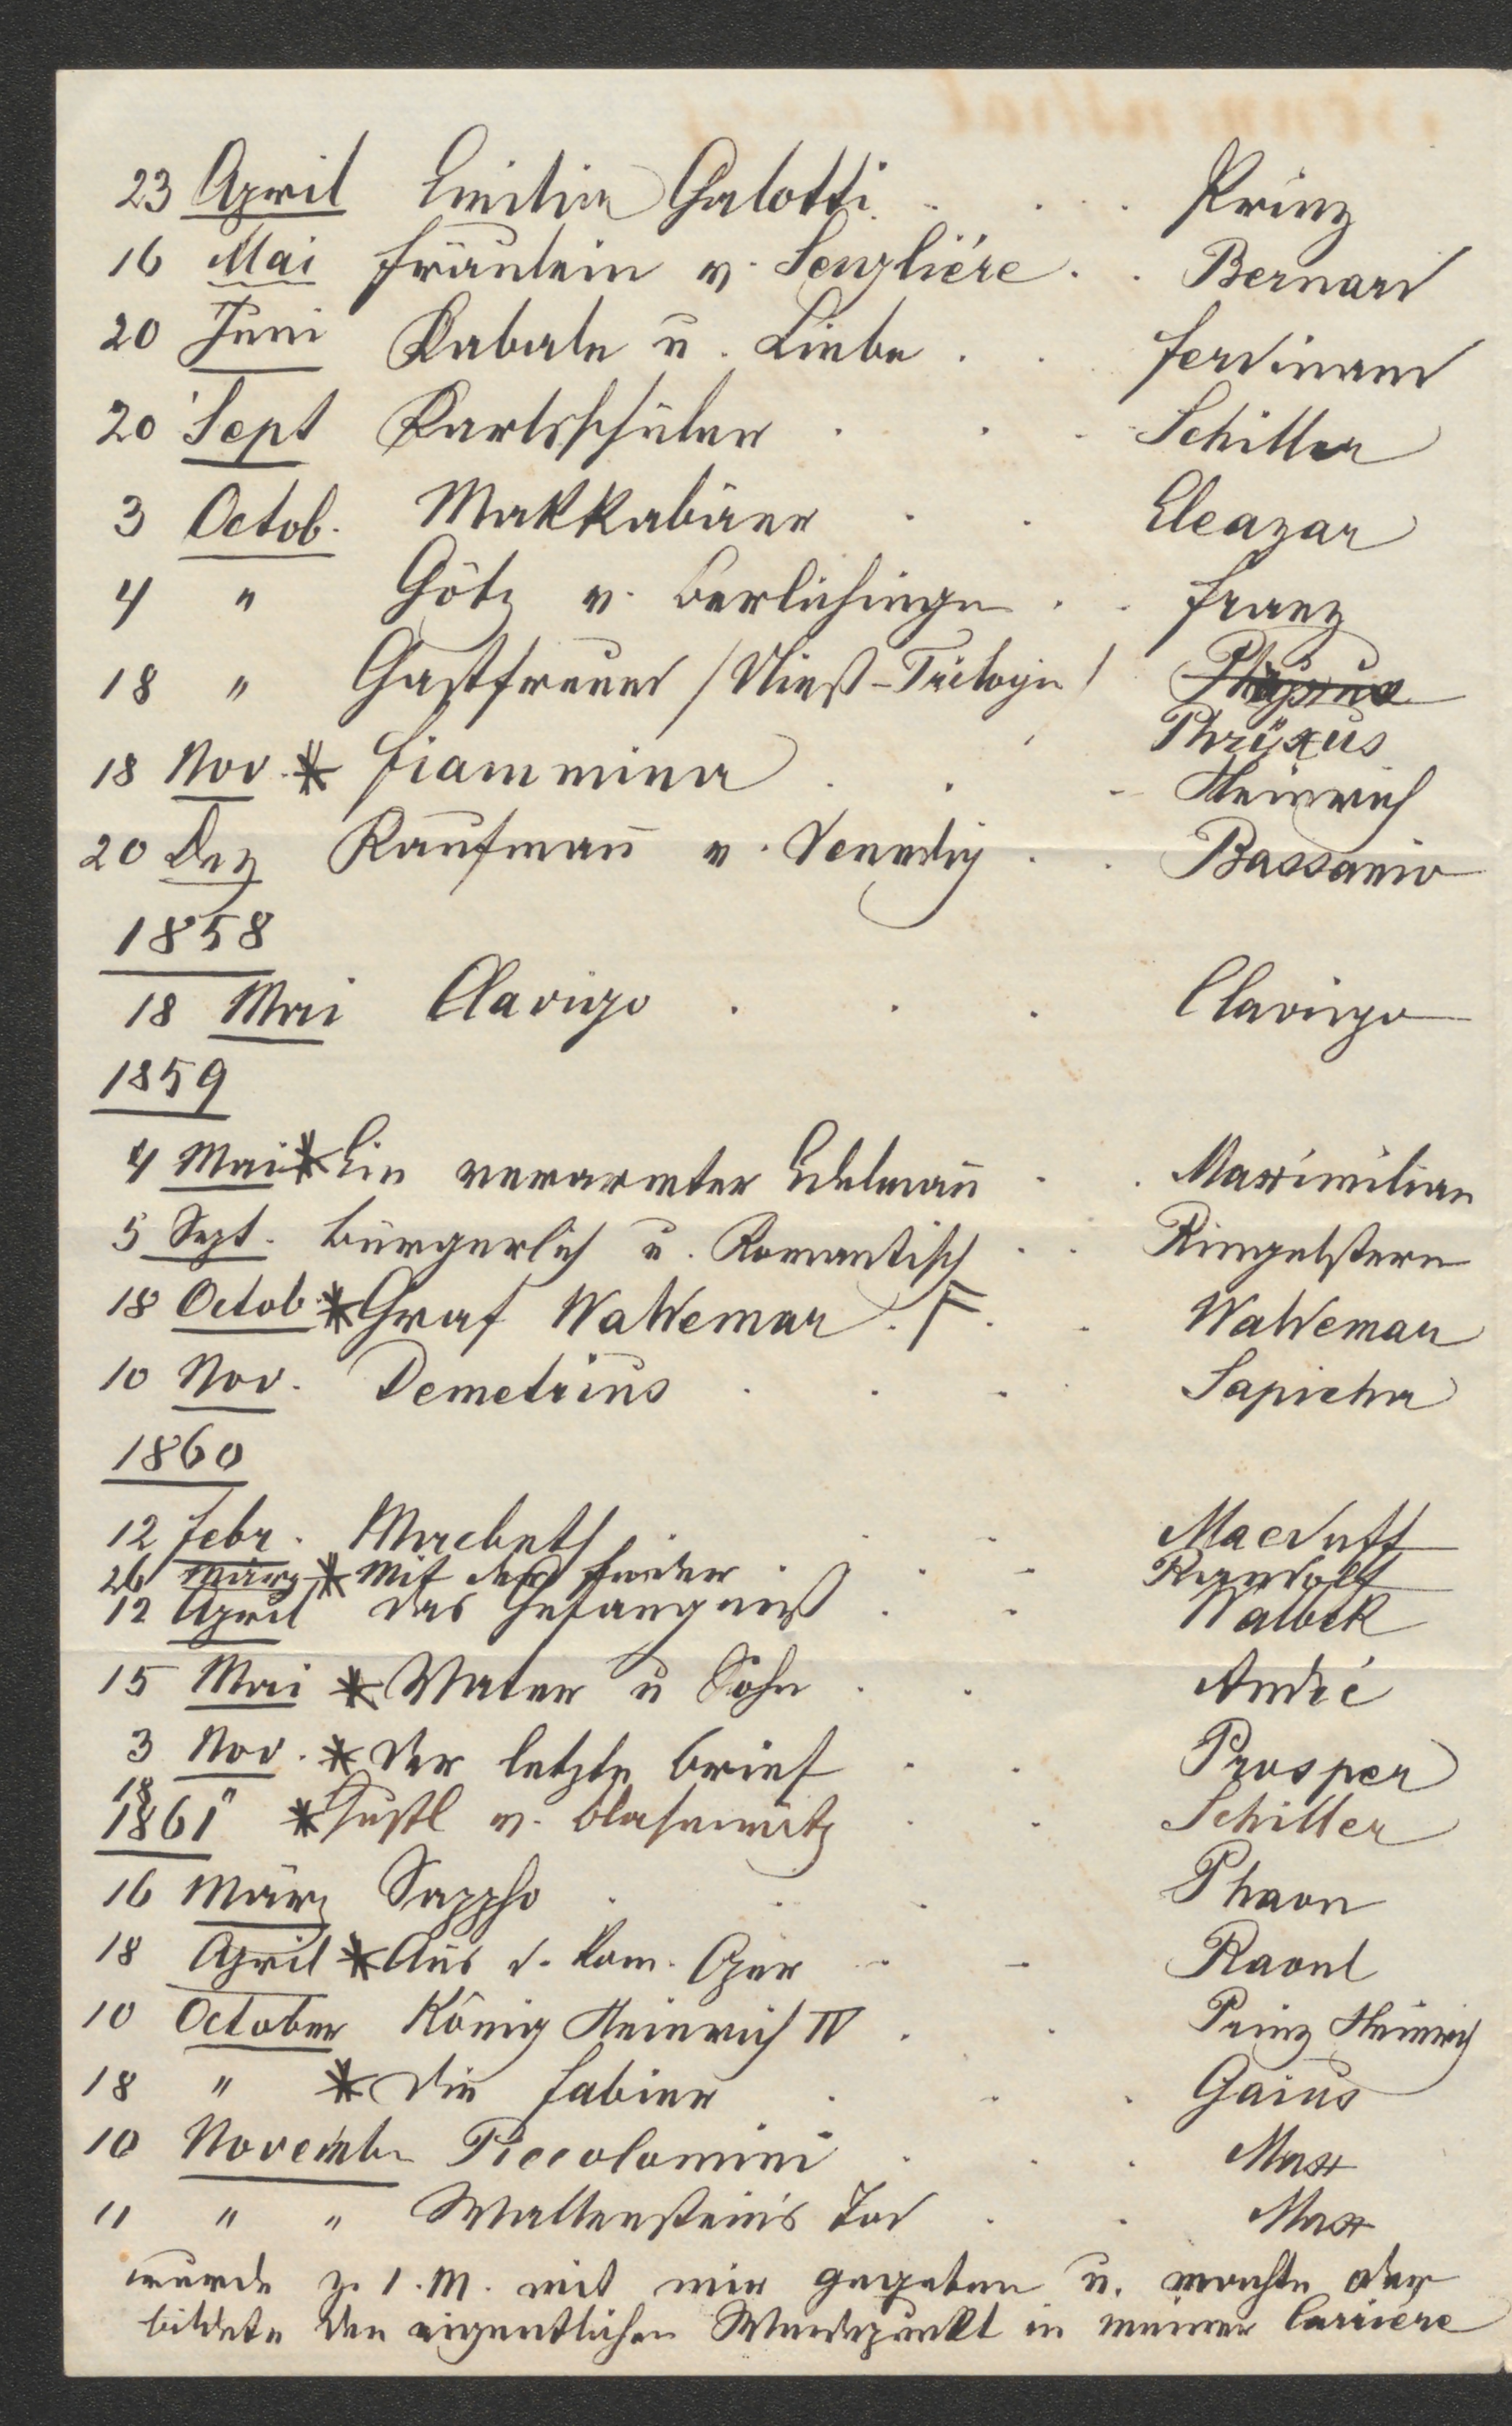 23 April Emilia Galotti . . . . Prinz
16 Mai Fräulein v. Seigliére . . Bernard
20 Juni Kabale u. Liebe . . Ferdinand
20 Sept Karlsschüler . . . Schiller
3 Octob. Makkabäer . . Eleazar
4 " Götz v. Berlichingen . . Franz
18 " Gastfreund /Vließ-Trilogie/
Phrÿxus
18 Nov. * Fiammina . . . Heinrich
20 Dez Kaufmañ v. Venedig . . Bassanio
1858
18 Mai Clavigo . . . Clavigo
1859
4 Mai * Ein verarmter Edelmañ . . Maximilian
5 Sept. Bürgerlich u. Romantisch . . Ringelstern
18 Octob. * Graf Waldemar . F. . Waldemar
10 Nov. Demetrius . . . Sapieha
1860
12 Febr. Macbeth . . . Macduff
26 März * Mit der Feder . . . Randolf
12 April Das Gefängniß . . Walbek
15 Mai * Vater u Sohn . . André
3 Nov. * Der letzte Brief . . Prosper
18 " * Gustl v. Blasewitz . . Schiller
1861
16 März Sappho . . . Phaon
18 April * Aus d. kom. Oper . . Raoul
10 October König Heinrich IV . . Prinz Heinrich
18 " * Die Fabier . . . Gaius
10 Novembr Piccolomini . . . Max
11 " " Wallenstein's Tod . . Max
wurde z. 1. M. mit mir gegeben u. machte oder
bildete den eigentlichen Wendepunkt in meiner Carriére